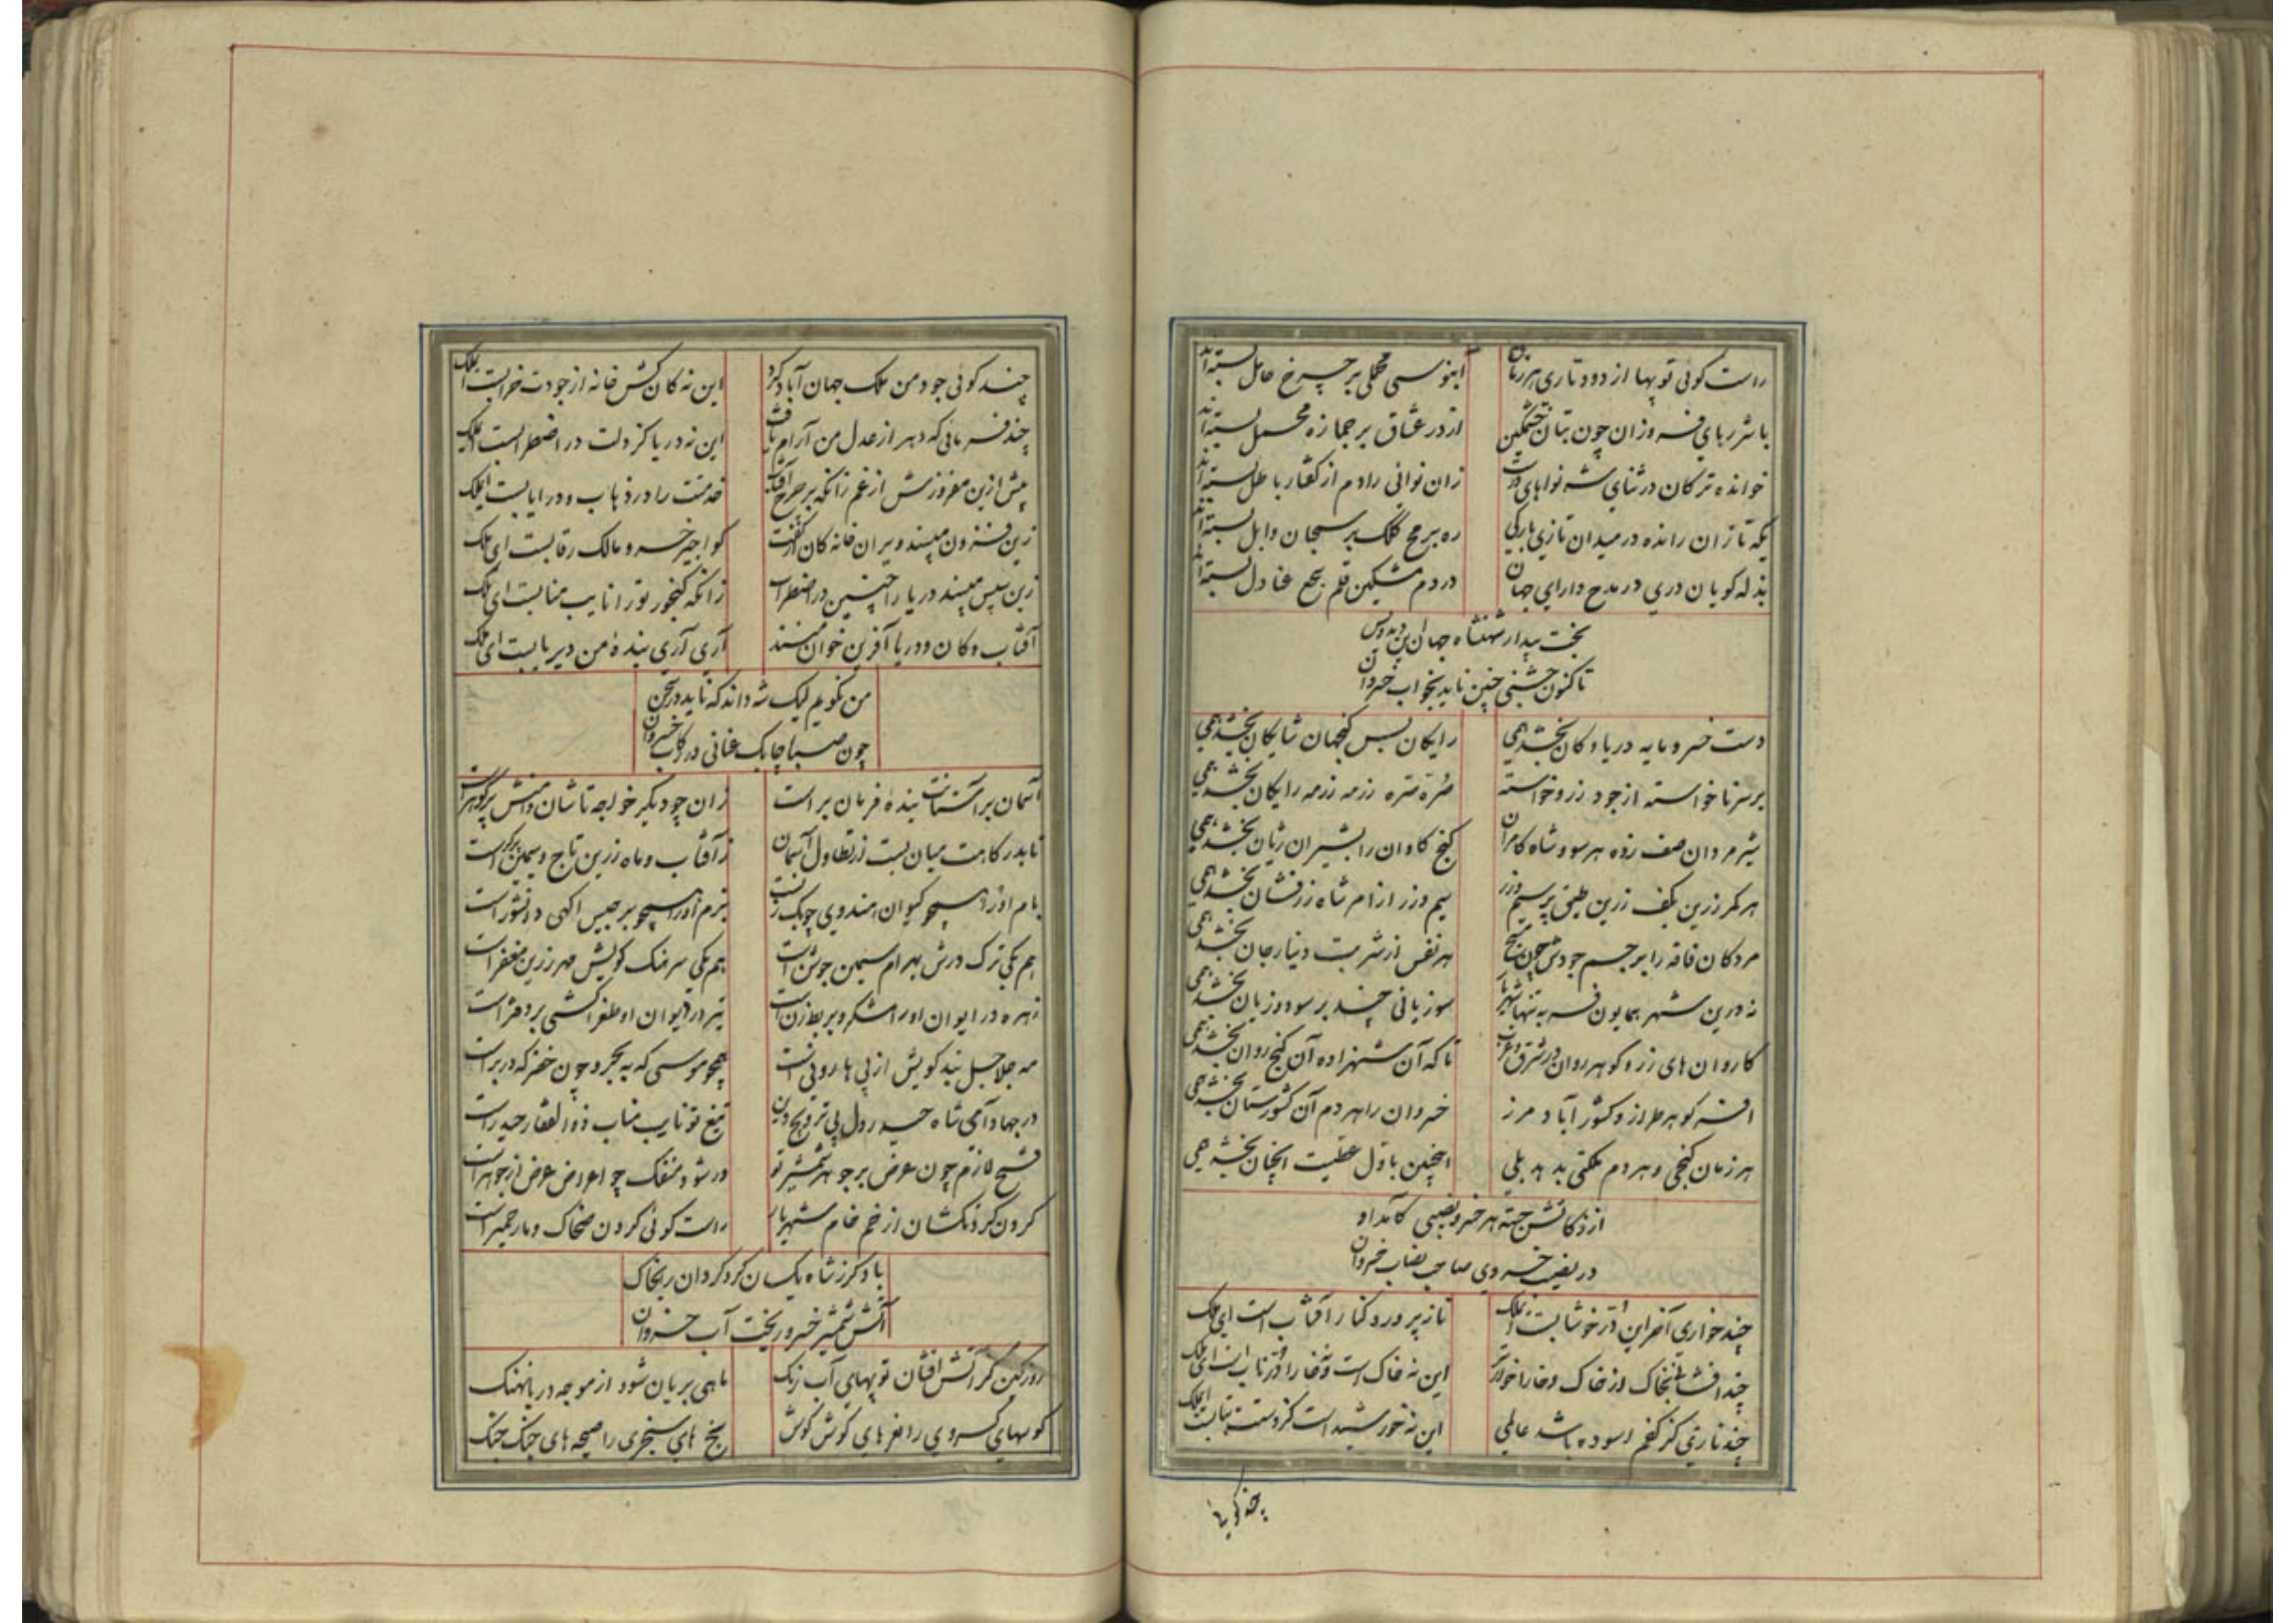 راست کوئی توپها از دود تاری هر زمان آبنوسی محملی بر چرخ حامل بسته‌اند
با شررهای فروزان چون بتان خشمکین از در عشاق بر جمازه محمل بسته‌اند
خوانده ترکان در ثنای شه نواهای درست زان نوائی را دم از کفتار باطل بسته‌اند
یکه تازان رانده در میدان تازی بارکی ره برمح کلک بر سحبان وایل بسته‌اند
بذله کویان دری در مدح دارای جهان در دم مشکین قلم سجع عنادل بسته‌اند
بخت بیدار شهنشاه جهان بین
تا کنون جشنی چنین ناید بخواب خسروان
دست خسرو مایه دریا و کان بخشد همی رایکان بس کنجهای شایکان بخشد همی
بر سر ناخواسته از جود زر و خواسته صره صره رزمه رزمه رایکان بخشد همی
شیر مردان صف زده هر سو و شاه کامران کنج کاوان را بشیران ژیان بخشد همی
هر کمر زرین بکف زرین طبقی پر سیم و زر سیم و زر از امر شاه زرفشان بخشد همی
مردکان فاقه را بر جسم جودش چون مسیح هر نفس از شربت دینار جان بخشد همی
نه درین شهر همایون فر به تنها شهریار سوزیانی چند بر سود و زیان بخشد همی
کاروان های زر و کوهر روان در شرق و غرب تا که آن شهزاده آن کنج روان بخشد همی
افسر کوهر طراز و کشور آباد مرز خسروان را هر دم آن کشورستان بخشد همی
هر زمان کنجی و هر دم ملکتی بدهد بلی اینچنین باذل عطیت آنچنان بخشد همی
از زکاتش جسته هر خسرو نصیبی کآمد او
در نصیب خسروی صاحب نصاب خسروان
چند خواری آخر این زر خوشابست ای ملک ناز پرورد و کنار آفتاب است ای ملک
چند افشانی بخاک و ز خاک و خارا خوارتر این نه خاک است و نه خارا زر ناب است ای ملک
چند نازی کز کفم آسوده باشد عالمی این نه خورشید است کز دستت بتابست ای ملک
چند کوئی
چند کوئی جود من ملک جهان آباد کرد این نه کان کش خانه از جودت خرابست ای ملک
چند فرمائی که دهر از عدل من آرام یافت این نه دریا کز دلت در اضطرابست ای ملک
بیش ازین مفروزش از غم زانکه بر چرخ آفتاب خدمتت را در ذهاب و در ایابست ای ملک
زین فزون مپسند ویران خانه کان کفت کو اجیر خسرو مالک رقابست ای ملک
زین سپس مپسند دریا را چنین در اضطراب زانکه کنجور تو را نایب منابست ای ملک
آفتاب و کان و دریا آفرین خوان منند آری آری بنده من دیریابست ای ملک
من نکویم لیک شه داند که ناید در سخن
چون صبا چابک عنانی در رکاب خسروان
آسمان بر آستانت بنده فرمان بر است زان چو دیکر خواجه تاشان دامنش پر کوهر است
تا بدرکاهت میان بست ز تطاول آسمان ز آفتاب و ماه زرین تاج و سیمین پیکر است
بام او را همچو کیوان هندوی چوبک زنست بزم او را همچو برجیس آکهی دانشور است
هم یکی ترک درش بهرام سیمین جوشن است هم یکی سرهنک کویش مهر زرین مغفر است
زهره در ایوان او رامشکر و بربط زن است تیر در دیوان او طغراکشی بر دفتر است
مه جلاجل بند کویش از پی هارونی است همچو موسی که به بحر و چون خضر که در بر است
در جهاد آمی شاه حیدر دل پی ترویج دین تیغ تو نایب مناب ذوالفقار حیدر است
فتح لازم چون عرض بر جوهر شمشیر تو ور شود منفک چو اعراض عرض از جوهر است
کردن کردنکشان از خم خام شهریار راست کوئی کردن ضحاک و مار حمیر است
باد کرز شاه یکسان کرد کردان را بخاک
آتش شمشیر خسرو ریخت آب خسروان
روز کین کز آتش افشان توپهای آب رنک ماهی بریان شود از موجه دریا نهنک
کوسهای خسروی را نعرهای کوش کوش نخ های سنجری را صیحه های جنک جنک